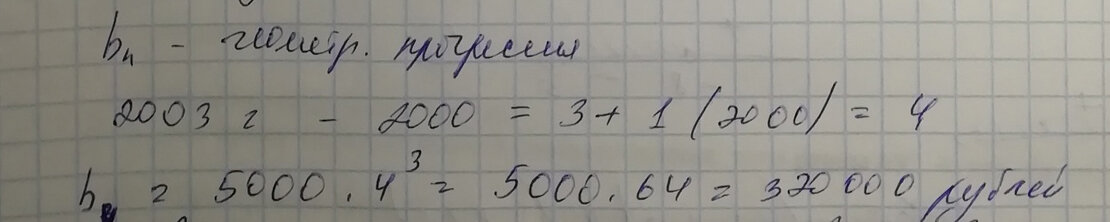 bn - геометр. прогрессия
2003 г - 2000 = 3 + 1 (2000) = 4
b4 = 5000 . 4³ = 5000 . 64 = 320000 рублей